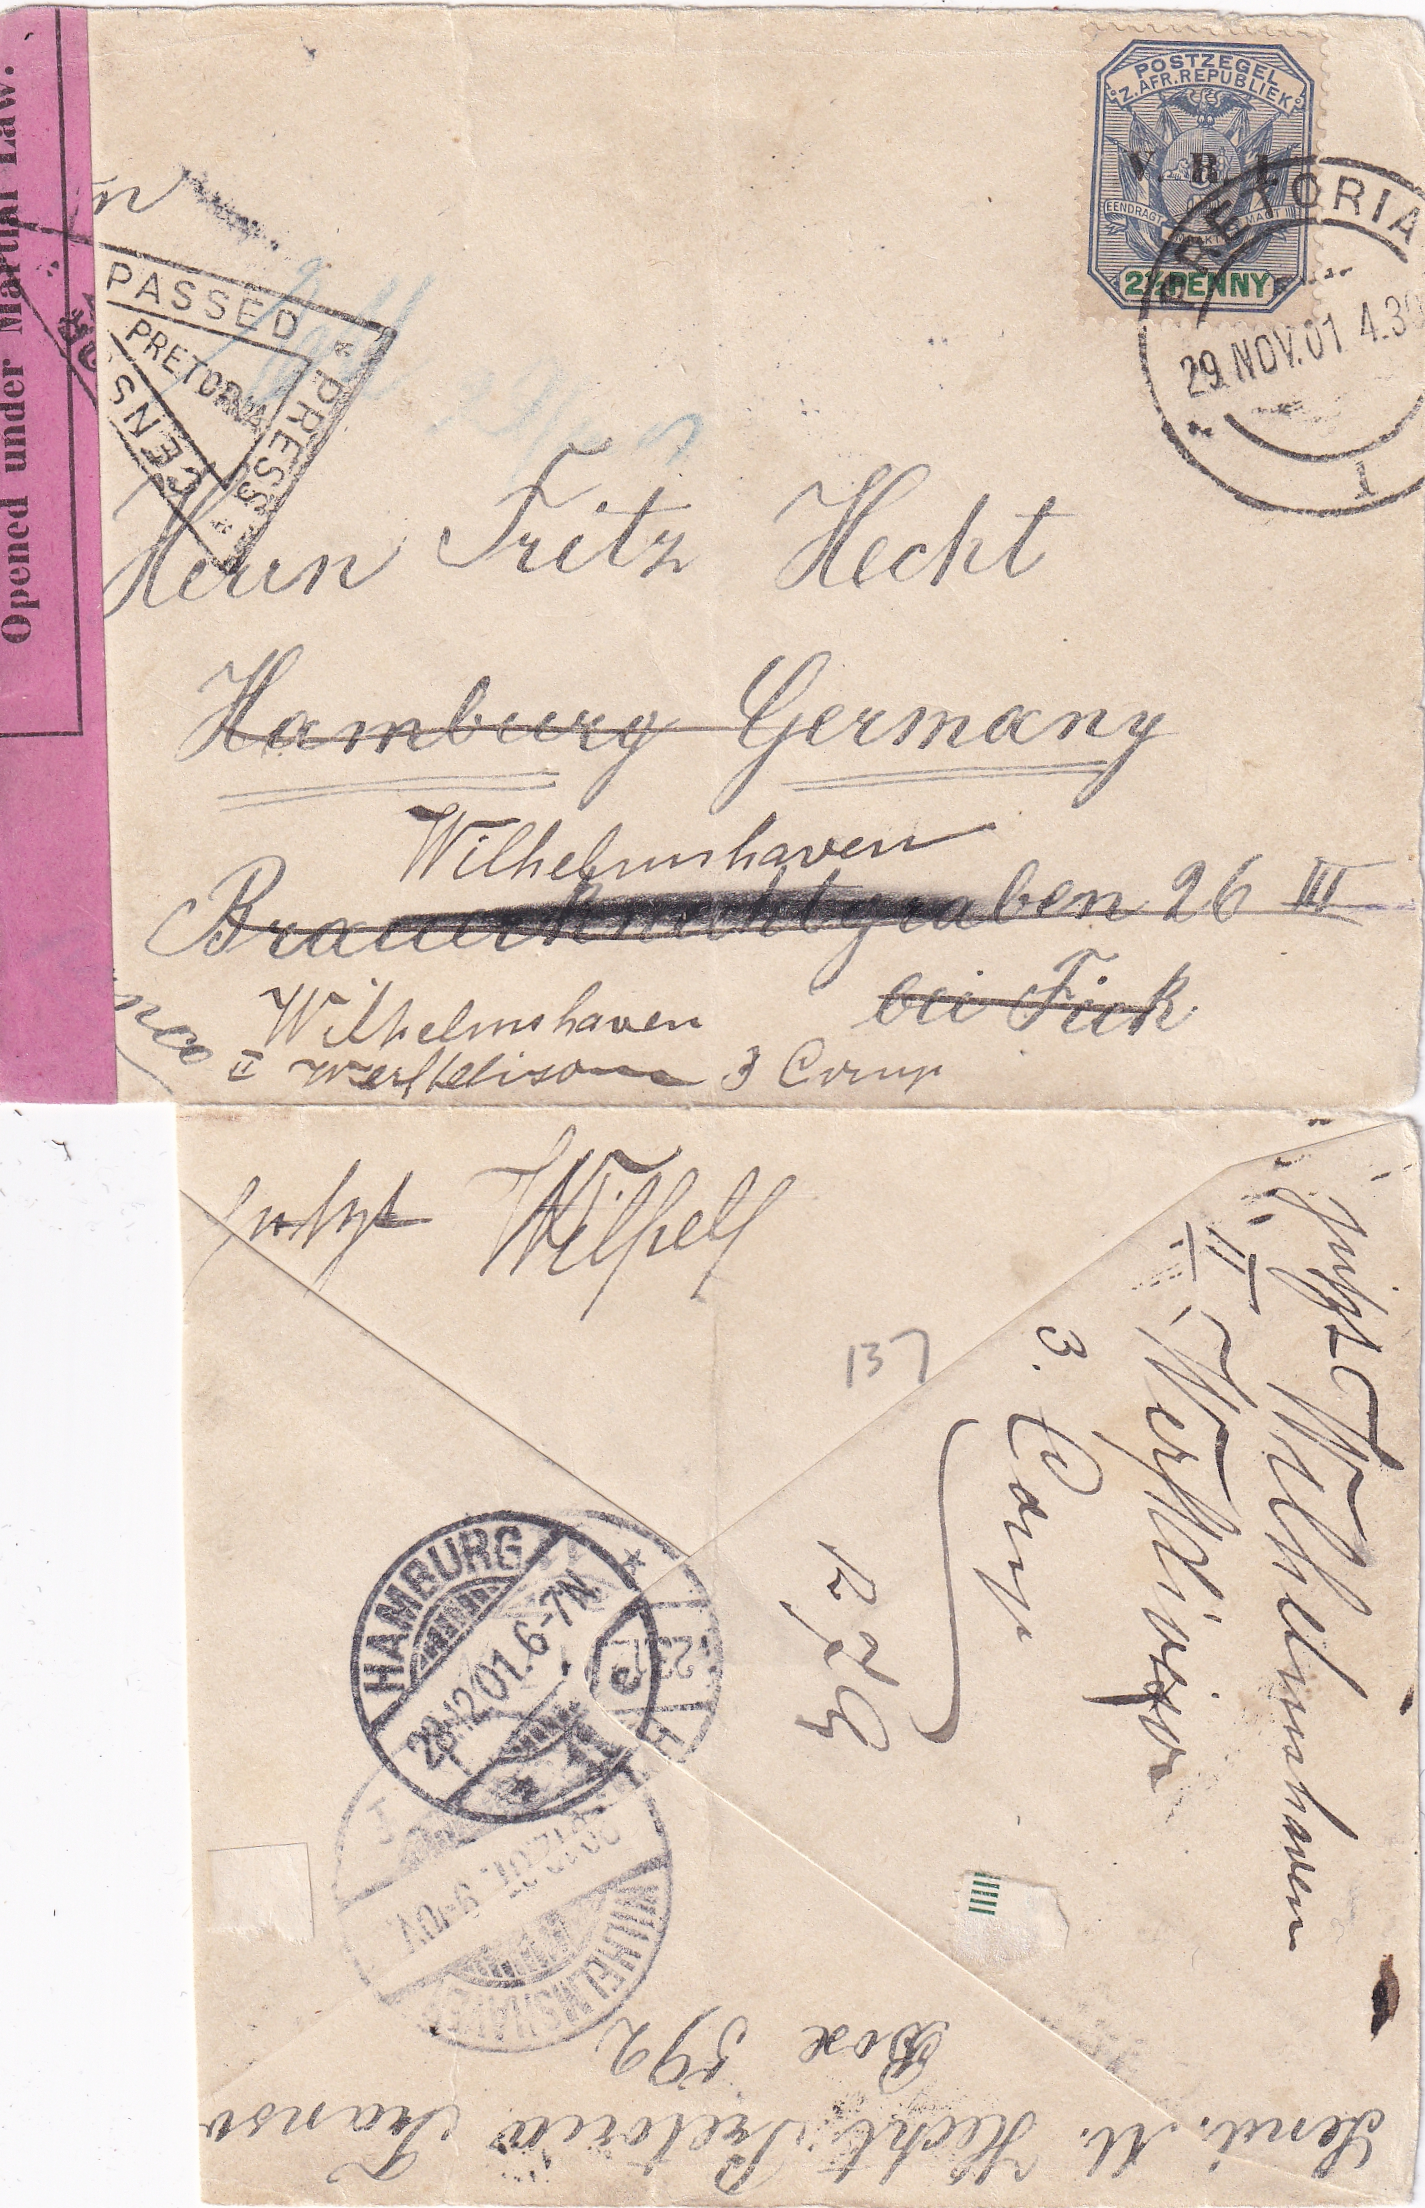 Opened under Martial Law.
POSTZEGEL
Z. AFR. REPUBLIEK
V. R. I.
EENDRAGT MAAKT MAGT
2½ PENNY
PRETORIA
29 NOV. 01 4.30
1
PASSED
PRESS
CENSOR
PRETORIA
Herrn Fritz Hecht
Hamburg Germany
Wilhelmshaven
Brauerknechtgraben 26 III
bei Fick
Wilhelmshaven
II Werftdivison 3 Comp
jetzt Wilhelmshaven
II Werftdivison
3. Comp
137
HAMBURG
28.12.01. 6-7N.
1
WILHELMSHAVEN
30.12.01. 9-10V.
Send. M. Hecht Pretoria Transv
Box 592